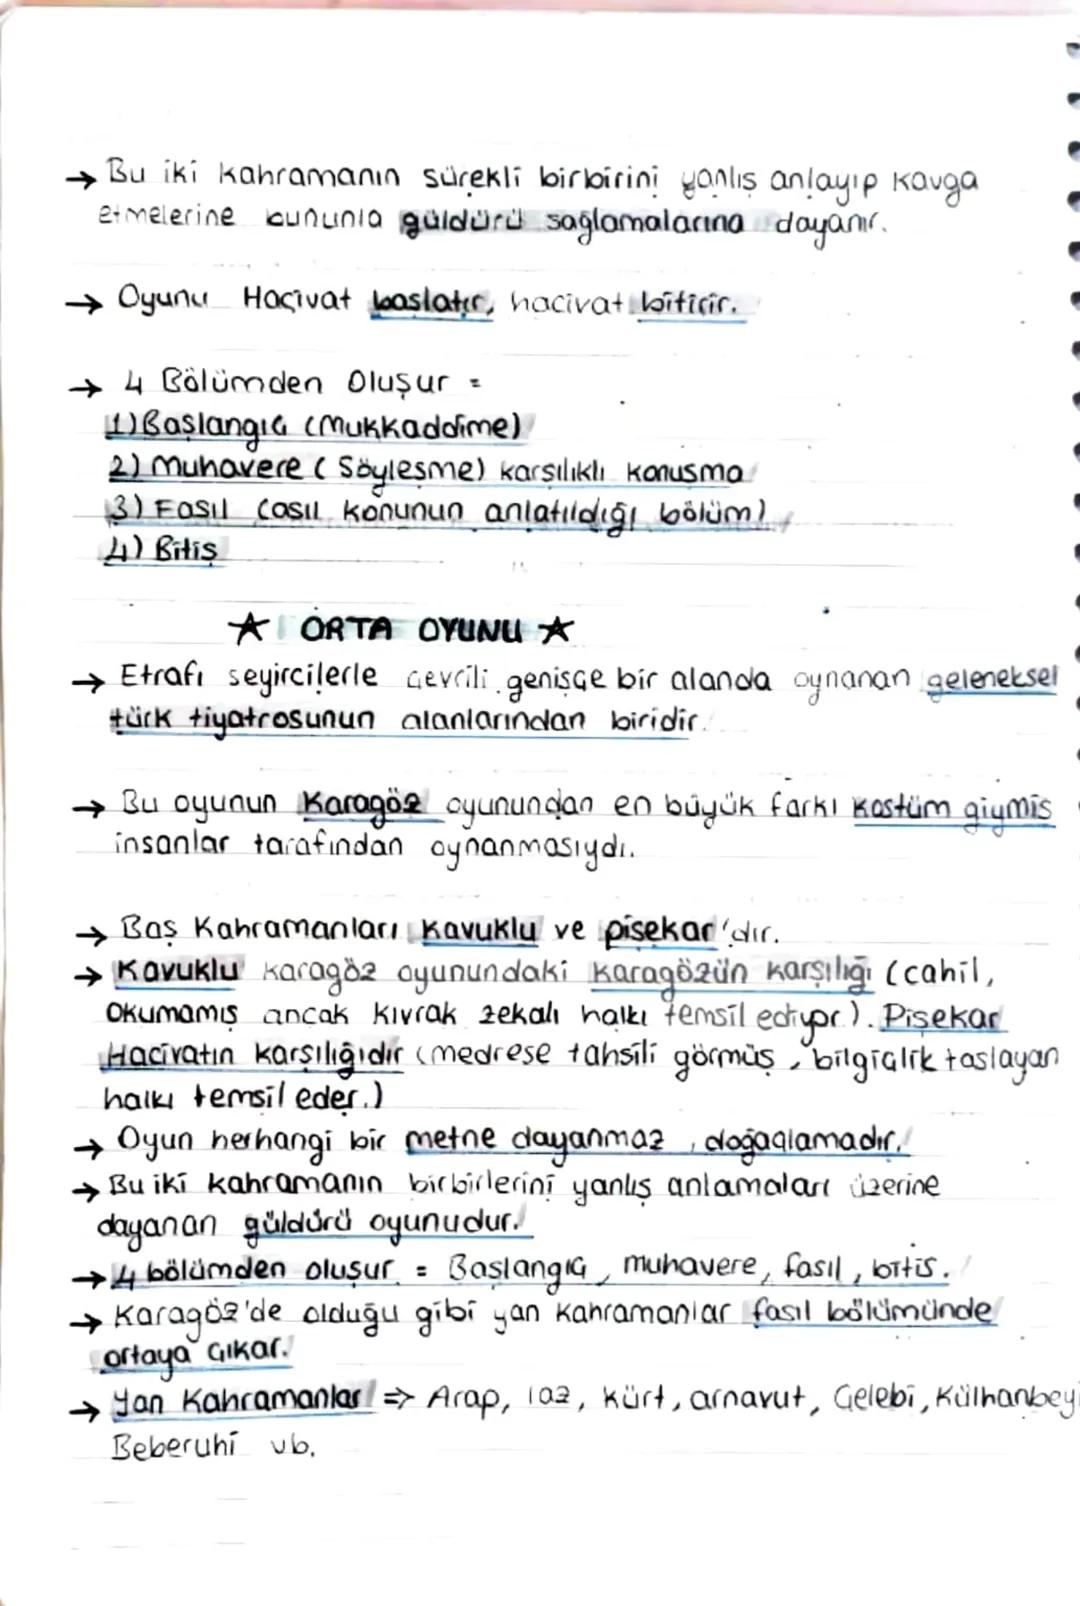 → Bu iki kahramanın sürekli birbirini yanlış anlayıp kavga
etmelerine bununla güldürü sağlamalarına dayanır.
→ Oyunu Hacivat başlatır, hacivat bitirir.
→ 4 Bölümden Oluşur =
1) Başlangıç (Mukkaddime)
2) Muhavere (Söyleşme) karşılıklı konuşma
3) Fasıl (asıl konunun anlatıldığı bölüm)
4) Bitiş
★ ORTA OYUNU ★
→ Etrafı seyircilerle çevrili genişçe bir alanda oynanan geleneksel
türk tiyatrosunun alanlarından biridir.
→ Bu oyunun Karagöz oyunundan en büyük farkı kostüm giymiş
insanlar tarafından oynanmasıydı.
→ Baş Kahramanları Kavuklu ve pişekar'dır.
→ Kavuklu karagöz oyunundaki karagözün karşılığı (cahil,
okumamış ancak kıvrak zekalı halkı temsil ediyor.). Pişekar
Hacivatın karşılığıdır (medrese tahsili görmüş, bilgiçlik taslayan
halkı temsil eder.)
→ Oyun herhangi bir metne dayanmaz, doğaçlamadır.
→ Bu iki kahramanın birbirlerini yanlış anlamaları üzerine
dayanan güldürü oyunudur.
→ 4 bölümden oluşur. = Başlangıç, muhavere, fasıl, bitiş.
→ Karagöz'de olduğu gibi yan kahramanlar fasıl bölümünde
ortaya çıkar.
→ Yan Kahramanlar ⇒ Arap, laz, kürt, arnavut, Çelebi, Külhanbeyi
Beberuhi vb.